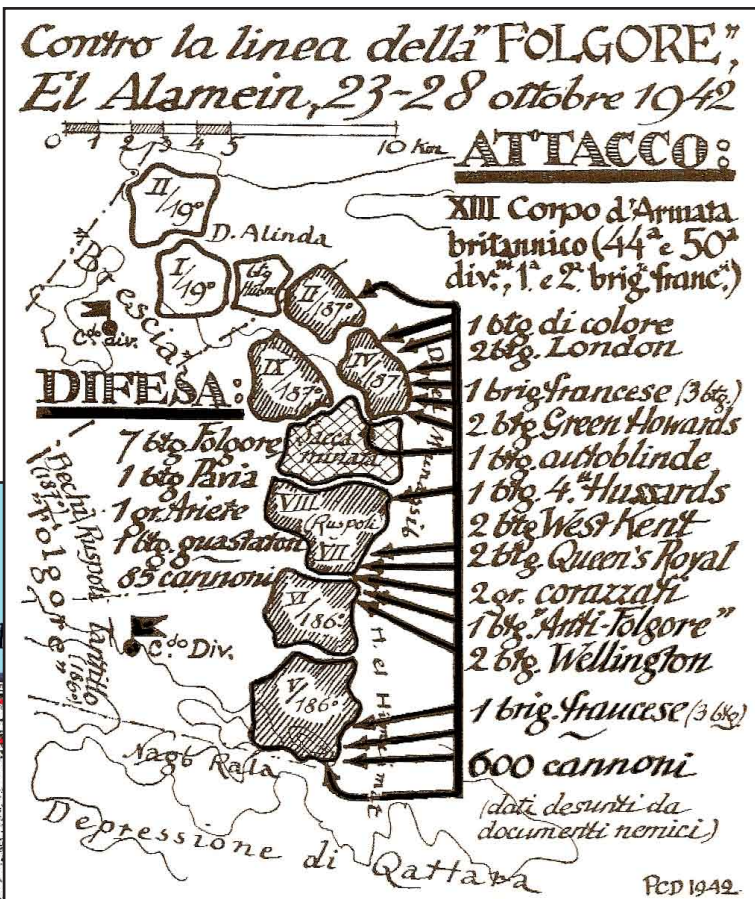 Contro la linea della "FOLGORE",
El Alamein, 23-28 ottobre 1942
0 1 2 3 4 5 10 Km
ATTACCO:
XIII Corpo d'Armata
britannico (44ª e 50ª
div.ni, 1ª e 2ª brig. franc.)
1 btg di colore
2 btg. London
1 brig. francese (3 btg.)
2 btg. Green Howards
1 btg. autoblinde
1 btg. 4.° Hussards
2 btg West Kent
2 btg. Queen's Royal
2 gr. corazzati
1 btg. "Anti-Folgore"
2 btg. Wellington
1 brig. francese (3 btg)
600 cannoni
(dati desunti da
documentti nemici)
PCD 1942
DIFESA:
7 btg. Folgore
1 btg Pavia
1 gr. Ariete
1 btg. guastatori
85 cannoni
II/19°
D. Alinda
I/19°
btg
II/187°
Brescia
C.do div.
IX/187°
IV/187
D. el Munassib
Sacca
minata
VIII
Ruspoli
VII
VI/186°
V/186°
H. el Himeimat
Bechi Ruspoli Tantillo
(187.°) (186.°)
"Folgore"
C.do Div.
Nagb Rala
Depressione di Qattara